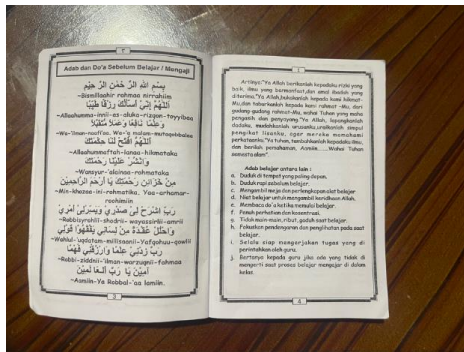 Adab dan Do'a Sebelum Belajar / Mengaji
بِسْمِ اللهِ الرَّحْمٰنِ الرَّحِيْمِ
~Bismillaahir rahmaa nirrahiim
اَللّٰهُمَّ إِنِّيْ أَسْأَلُكَ رِزْقًا طَيِّبًا
~Allaahumma-innii-as-aluka-rizqan-tayyiban
وَعِلْمًا نَافِعًا وَعَمَلًا مُتَقَبَّلًا
~Wa-'ilman-naafi'an, Wa-'a malam-mutaqabbalaa
اَللّٰهُمَّ افْتَحْ لَنَا حِكْمَتَكَ
~Allaahummaftah-lanaa-hikmataka
وَانْشُرْ عَلَيْنَا رَحْمَتَكَ
~Wansyur-'alainaa-rahmataka
مِنْ خَزَائِنِ رَحْمَتِكَ يَا أَرْحَمَ الرَّاحِمِيْنَ
~Min-khazaa-ini-rahmatika, Yaa-arhamar-
roohimiin
رَبِّ اشْرَحْ لِيْ صَدْرِيْ وَيَسِّرْلِيْ أَمْرِيْ
~Rabbisyrahlii-shadrii-wayassirlii-amrii
وَاحْلُلْ عُقْدَةً مِنْ لِسَانِيْ يَفْقَهُوْا قَوْلِيْ
~Wahlul-'uqdatam-milisaanii-Yafqahuu-qowlii
رَبِّ زِدْنِيْ عِلْمًا وَارْزُقْنِيْ فَهْمًا
~Robbi-ziddnii-'ilman-warzuqnii-fahmaa
آمِيْنَ يَا رَبَّ الْعَالَمِيْنَ
~Aamiin-Ya Robbal-'aa lamiin.
3
Artinya:"Ya Allah berikanlah kepadaku rizki yang
baik, ilmu yang bermanfaat,dan amal ibadah yang
diterima,"Ya Allah,bukakanlah kepada kami hikmat-
Mu,dan taburkanlah kepada kami rahmat -Mu, dari
gudang-gudang rahmat-Mu, wahai Tuhan yang maha
pengasih dan penyayang."Ya Allah, lapangkanlah
dadaku, mudahkanlah urusanku,uraikanlah simpul
pengikat lisanku, agar mereka memahami
perkataanku."Ya tuhan, tambahkanlah kepadaku ilmu,
dan berilah pahaman, Aamiin.....Wahai Tuhan
semesta alam".
Adab belajar antara lain :
a. Duduk di tempat yang paling depan.
b. Duduk rapi sebelum belajar.
c. Mengambil meja dan perlengkapan alat belajar
d. Niat belajar untuk mengambil keridhoan Allah.
e. Membaca do'a ketika memulai belajar
f. Penuh perhatian dan kosentrasi.
g. Tidak main-main, ribut, gaduh saat belajar.
h. Fokuskan pendengaran dan penglihatan pada saat
belajar.
i. Selalu siap mengerjakan tugas yang di
perintahkan oleh guru.
j. Bertanya kepada guru jika ada yang tidak di
mengerti saat proses belajar mengajar di dalam
kelas.
4